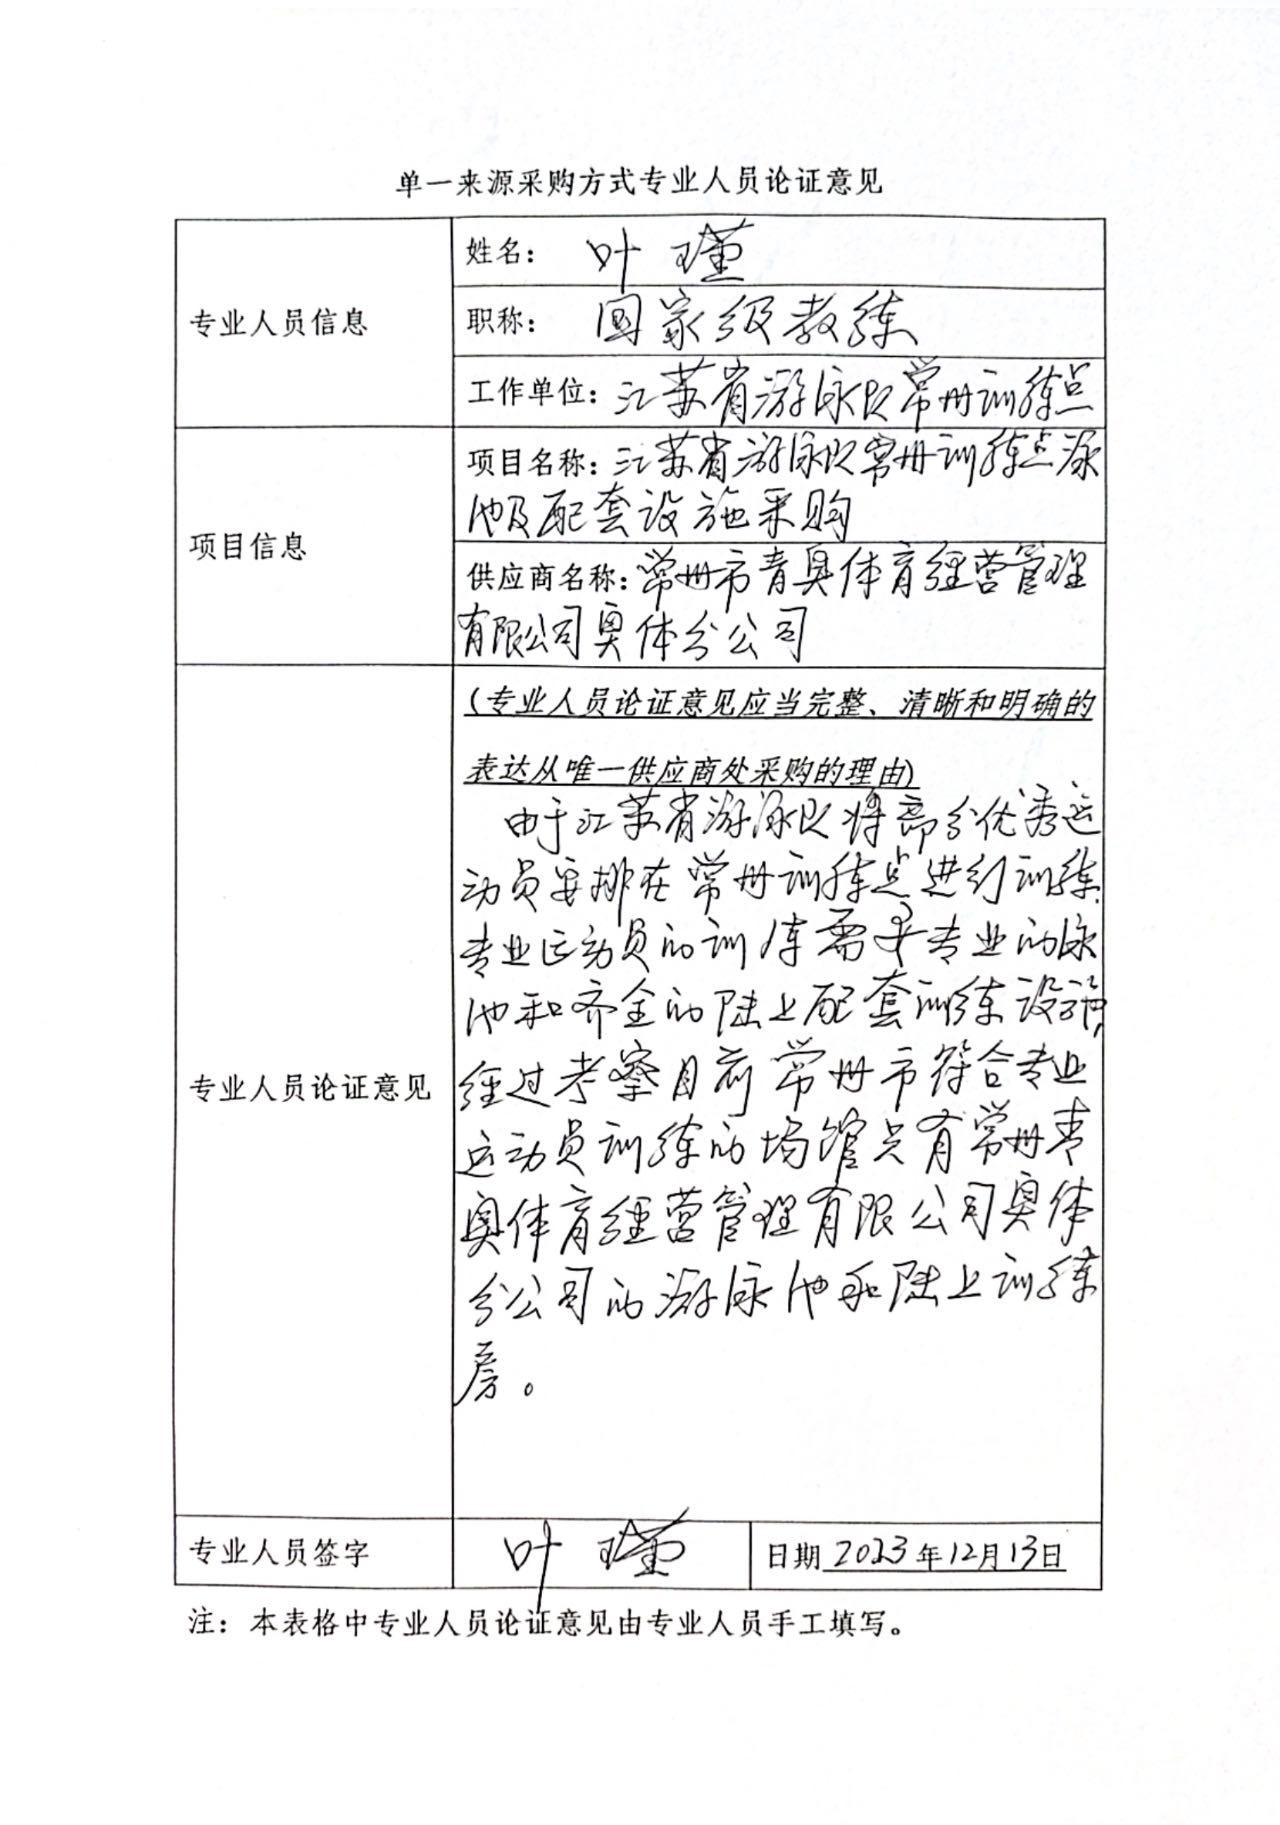 单一来源采购方式专业人员论证意见
专业人员信息
姓名： 叶瑾
职称： 国家级教练
工作单位：江苏省游泳队常州训练点
项目信息
项目名称：江苏省游泳队常州训练点泳
池及配套设施采购
供应商名称：常州市青奥体育经营管理
有限公司奥体分公司
专业人员论证意见
(专业人员论证意见应当完整、清晰和明确的
表达从唯一供应商处采购的理由)
由于江苏省游泳队将部分优秀运
动员安排在常州训练点进行训练，
专业运动员的训练需要专业的泳
池和齐全的陆上配套训练设施，
经过考察目前常州市符合专业
运动员训练的场馆只有常州青
奥体育经营管理有限公司奥体
分公司的游泳池和陆上训练
房。
专业人员签字
叶瑾
日期 2023年12月13日
注：本表格中专业人员论证意见由专业人员手工填写。